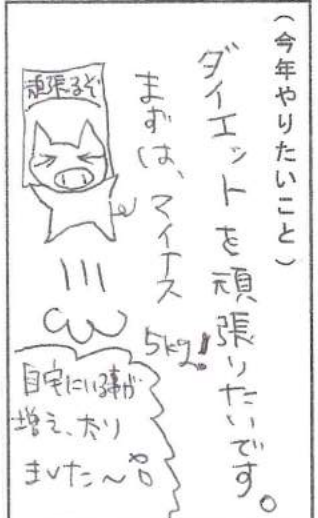 （今年やりたいこと）
ダイエットを頑張りたいです。
まずは、マイナス
5kg!
頑張るぞ
自宅にいる事が
増え、太り
ました〜